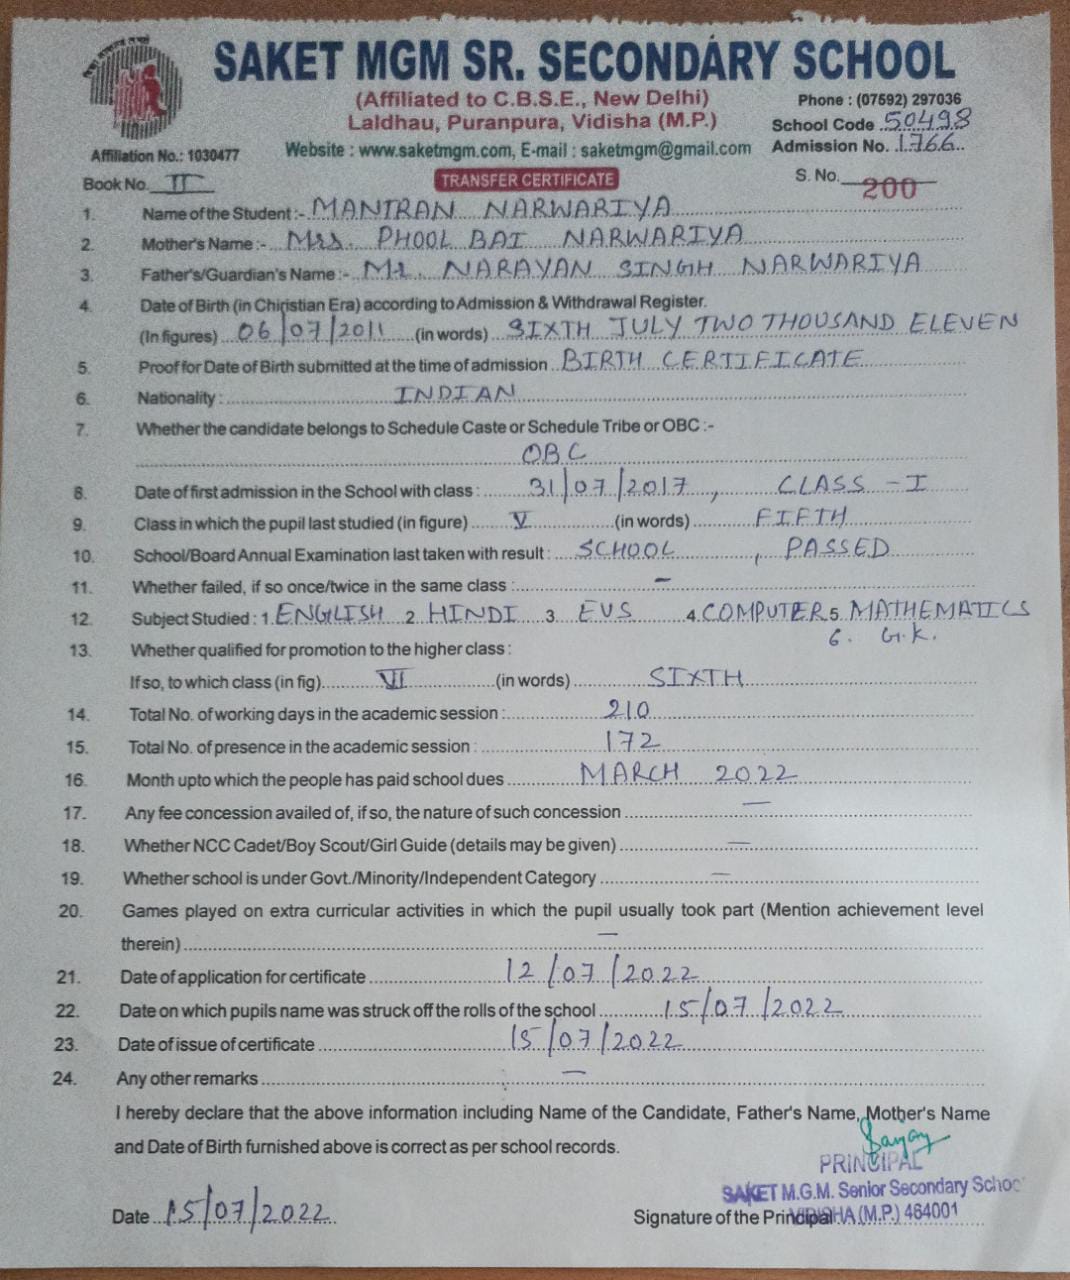 SAKET MGM SR. SECONDARY SCHOOL
(Affiliated to C.B.S.E., New Delhi)
Phone : (07592) 297036
Laldhau, Puranpura, Vidisha (M.P.)
School Code 50498
Affiliation No.: 1030477
Website : www.saketmgm.com, E-mail : saketmgm@gmail.com
Admission No. 1766
Book No. II
TRANSFER CERTIFICATE
S. No. 200
1. Name of the Student :- MANTRAN NARWARIYA
2. Mother's Name :- Mrs. PHOOL BAI NARWARIYA
3. Father's/Guardian's Name :- Mr. NARAYAN SINGH NARWARIYA
4. Date of Birth (in Chiristian Era) according to Admission & Withdrawal Register.
(In figures) 06/07/2011 (in words) SIXTH JULY TWO THOUSAND ELEVEN
5. Proof for Date of Birth submitted at the time of admission BIRTH CERTIFICATE
6. Nationality : INDIAN
7. Whether the candidate belongs to Schedule Caste or Schedule Tribe or OBC :-
OBC
8. Date of first admission in the School with class : 31/07/2017, CLASS - I
9. Class in which the pupil last studied (in figure) V (in words) FIFTH
10. School/Board Annual Examination last taken with result : SCHOOL , PASSED
11. Whether failed, if so once/twice in the same class : -
12. Subject Studied : 1. ENGLISH 2. HINDI 3. EVS 4. COMPUTER 5. MATHEMATICS
6. G.K.
13. Whether qualified for promotion to the higher class :
If so, to which class (in fig) VI (in words) SIXTH
14. Total No. of working days in the academic session : 210
15. Total No. of presence in the academic session : 172
16. Month upto which the people has paid school dues MARCH 2022
17. Any fee concession availed of, if so, the nature of such concession —
18. Whether NCC Cadet/Boy Scout/Girl Guide (details may be given) —
19. Whether school is under Govt./Minority/Independent Category —
20. Games played on extra curricular activities in which the pupil usually took part (Mention achievement level
therein) —
21. Date of application for certificate 12/07/2022
22. Date on which pupils name was struck off the rolls of the school 15/07/2022
23. Date of issue of certificate 15/07/2022
24. Any other remarks —
I hereby declare that the above information including Name of the Candidate, Father's Name, Mother's Name
and Date of Birth furnished above is correct as per school records.
PRINCIPAL
SAKET M.G.M. Senior Secondary School
VIDISHA (M.P.) 464001
Date 15/07/2022
Signature of the Principal